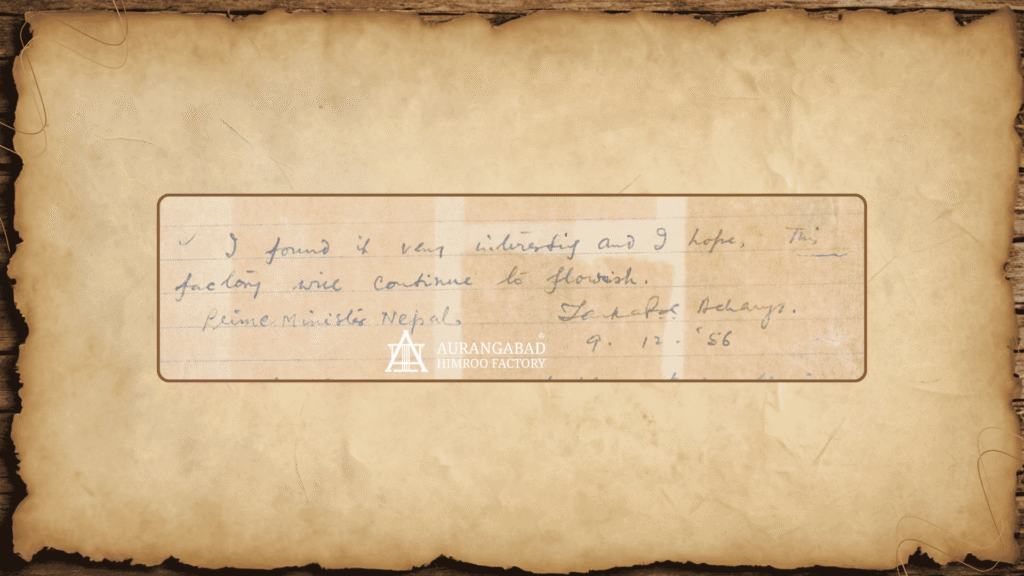 I found it very interesting and I hope, This
factory will continue to flourish.
Prime Minister Nepal. Tanka Pd. Acharya.
9. 12. '56
AURANGABAD
HIMROO FACTORY